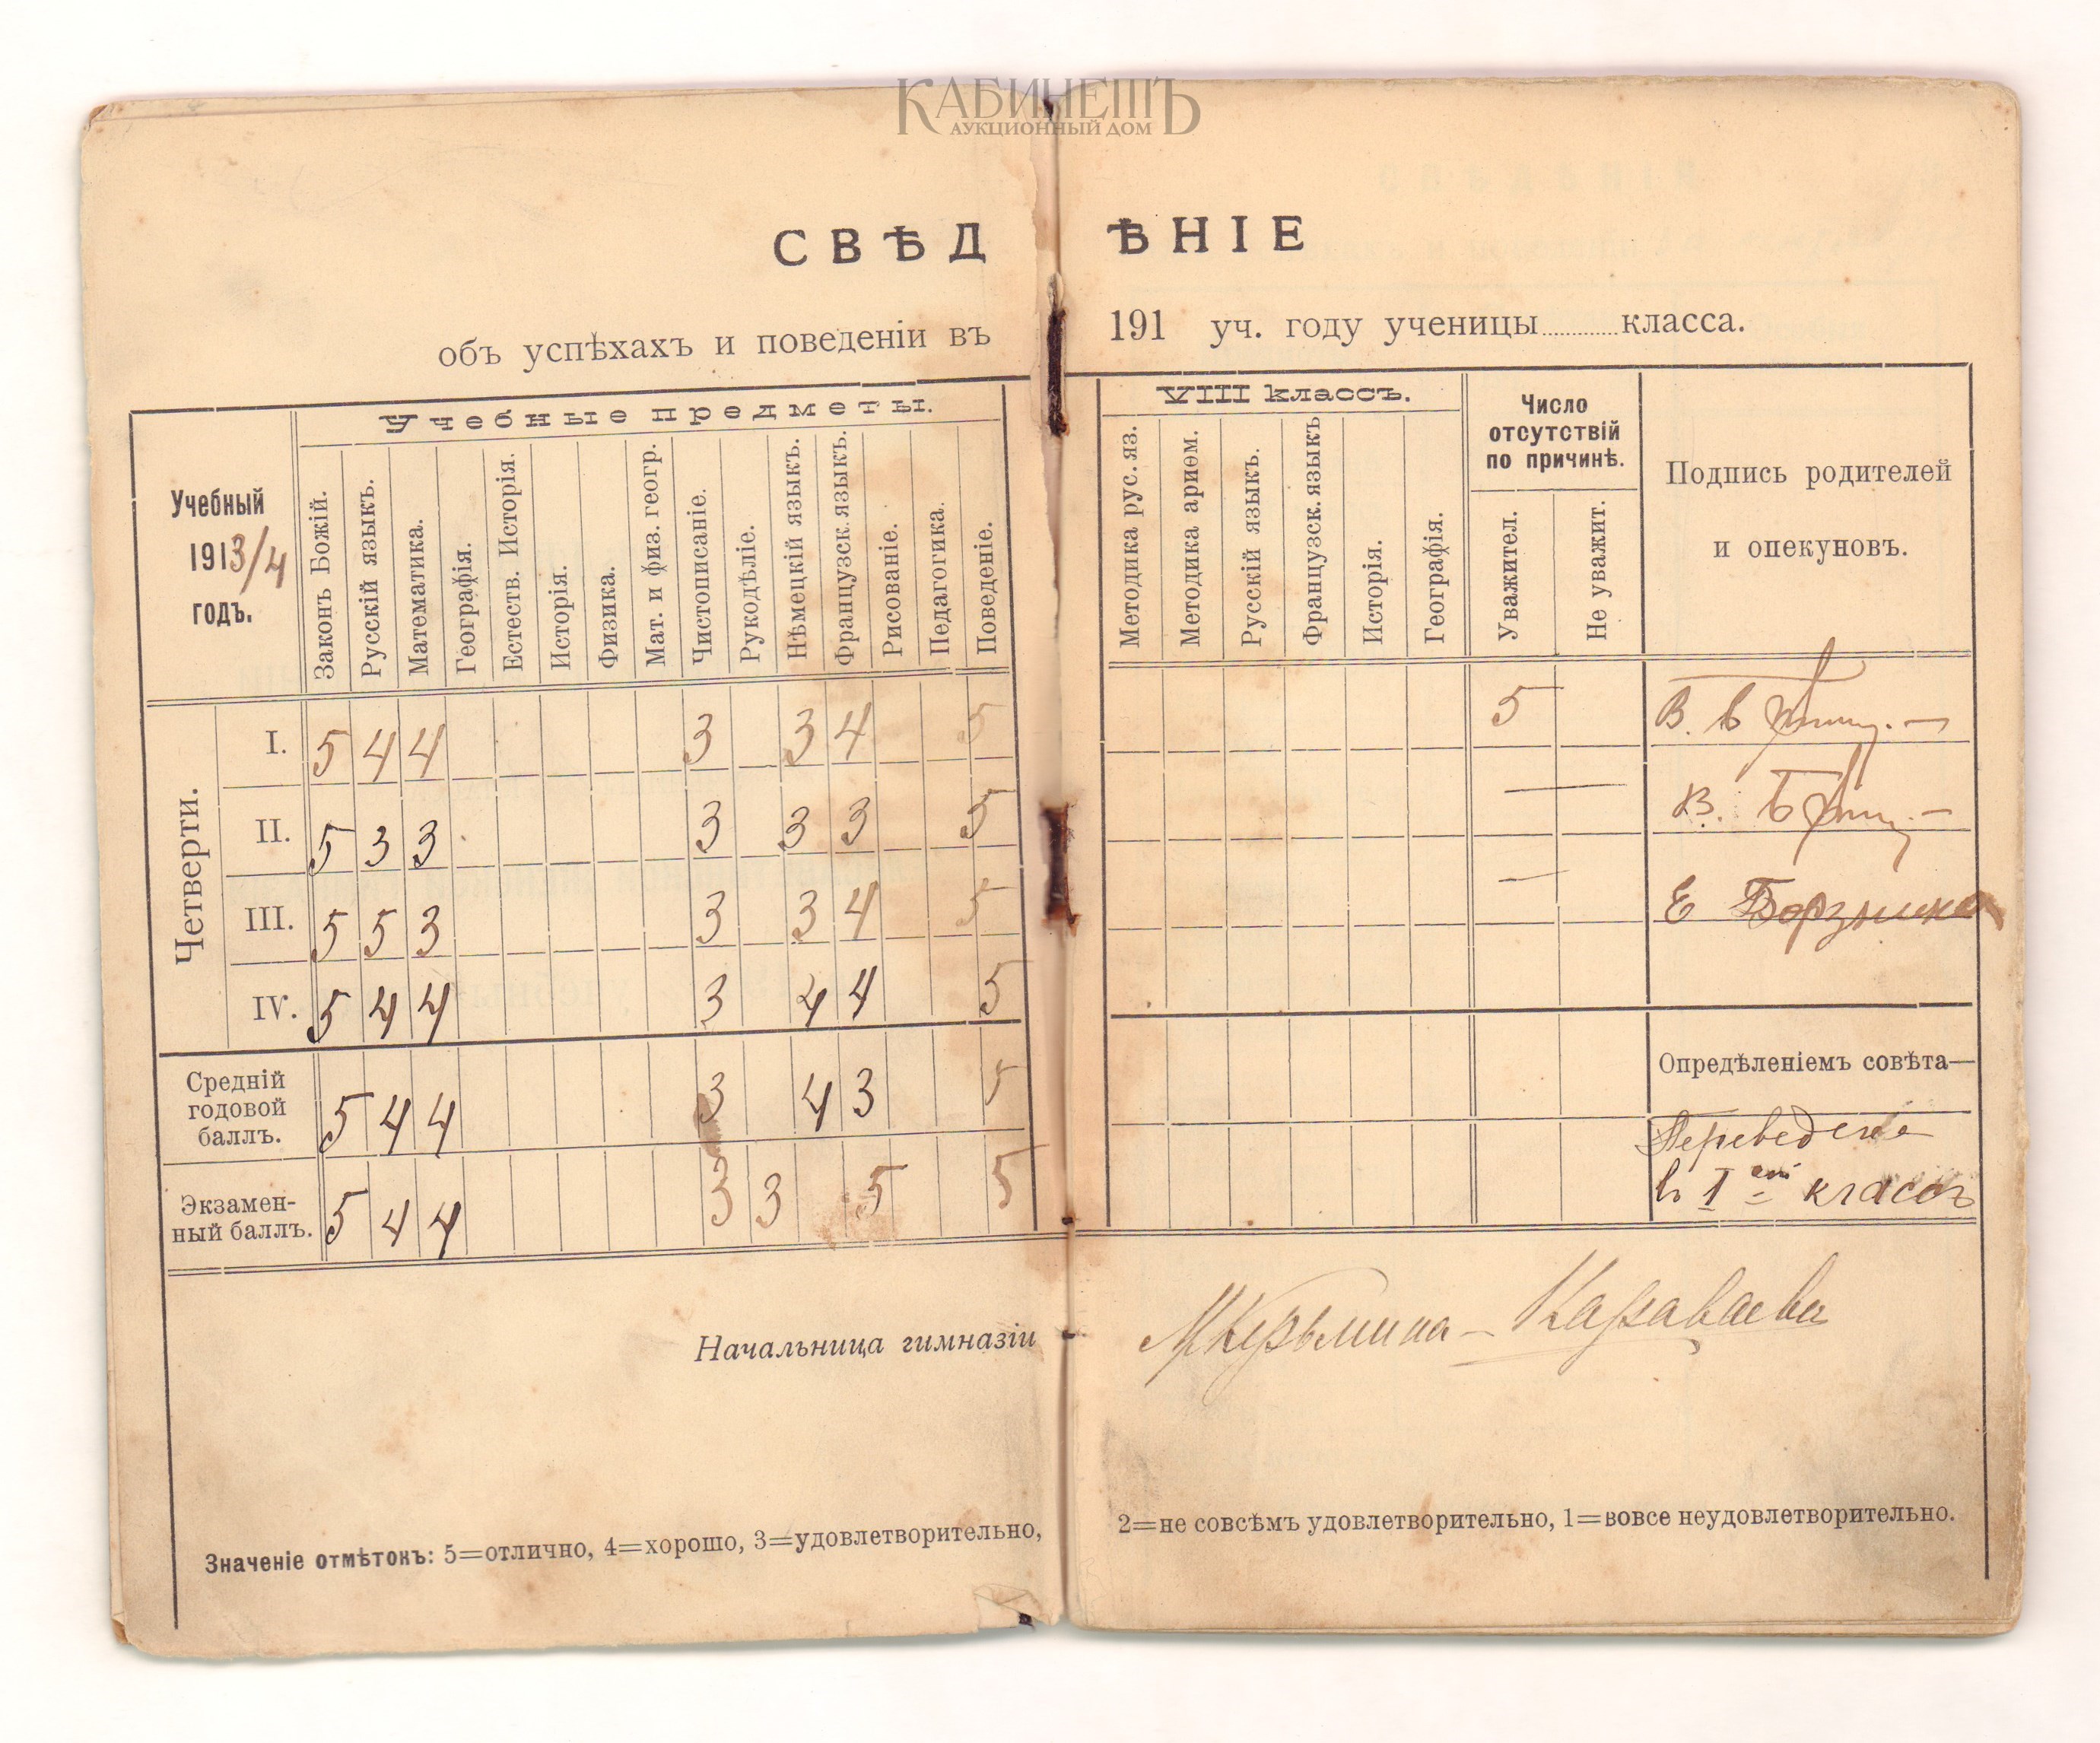 КАБИНЕТЪ
АУКЦИОННЫЙ ДОМ
СВѢДѢНІЕ
объ успѣхахъ и поведеніи въ 191 уч. году ученицы ............ класса.
Учебный 1913/4 годъ.
Учебные предметы.
Законъ Божій.
Русскій языкъ.
Математика.
Географія.
Естеств. Исторія.
Исторія.
Физика.
Мат. и физ. геогр.
Чистописаніе.
Рукодѣліе.
Нѣмецкій языкъ.
Французск. языкъ.
Рисованіе.
Педагогика.
Поведеніе.
VIII классъ.
Методика рус. яз.
Методика ариѳм.
Русскій языкъ.
Французск. языкъ
Исторія.
Географія.
Число отсутствій по причинѣ.
Уважител.
Не уважит.
Подпись родителей
и опекуновъ.
Четверти.
I. 5 4 4 3 3 4 5 5 В.
II. 5 3 3 3 3 3 5 — В.
III. 5 5 3 3 3 4 5 — Е
IV. 5 4 4 3 4 4 5
Средній годовой баллъ. 5 4 4 3 4 3 5
Опредѣленіемъ совѣта—
Экзаменный баллъ. 5 4 4 3 3 5 5
Переведена
въ I классъ
Начальница гимназіи
Караваева
Значеніе отмѣтокъ: 5=отлично, 4=хорошо, 3=удовлетворительно, 2=не совсѣмъ удовлетворительно, 1=вовсе неудовлетворительно.